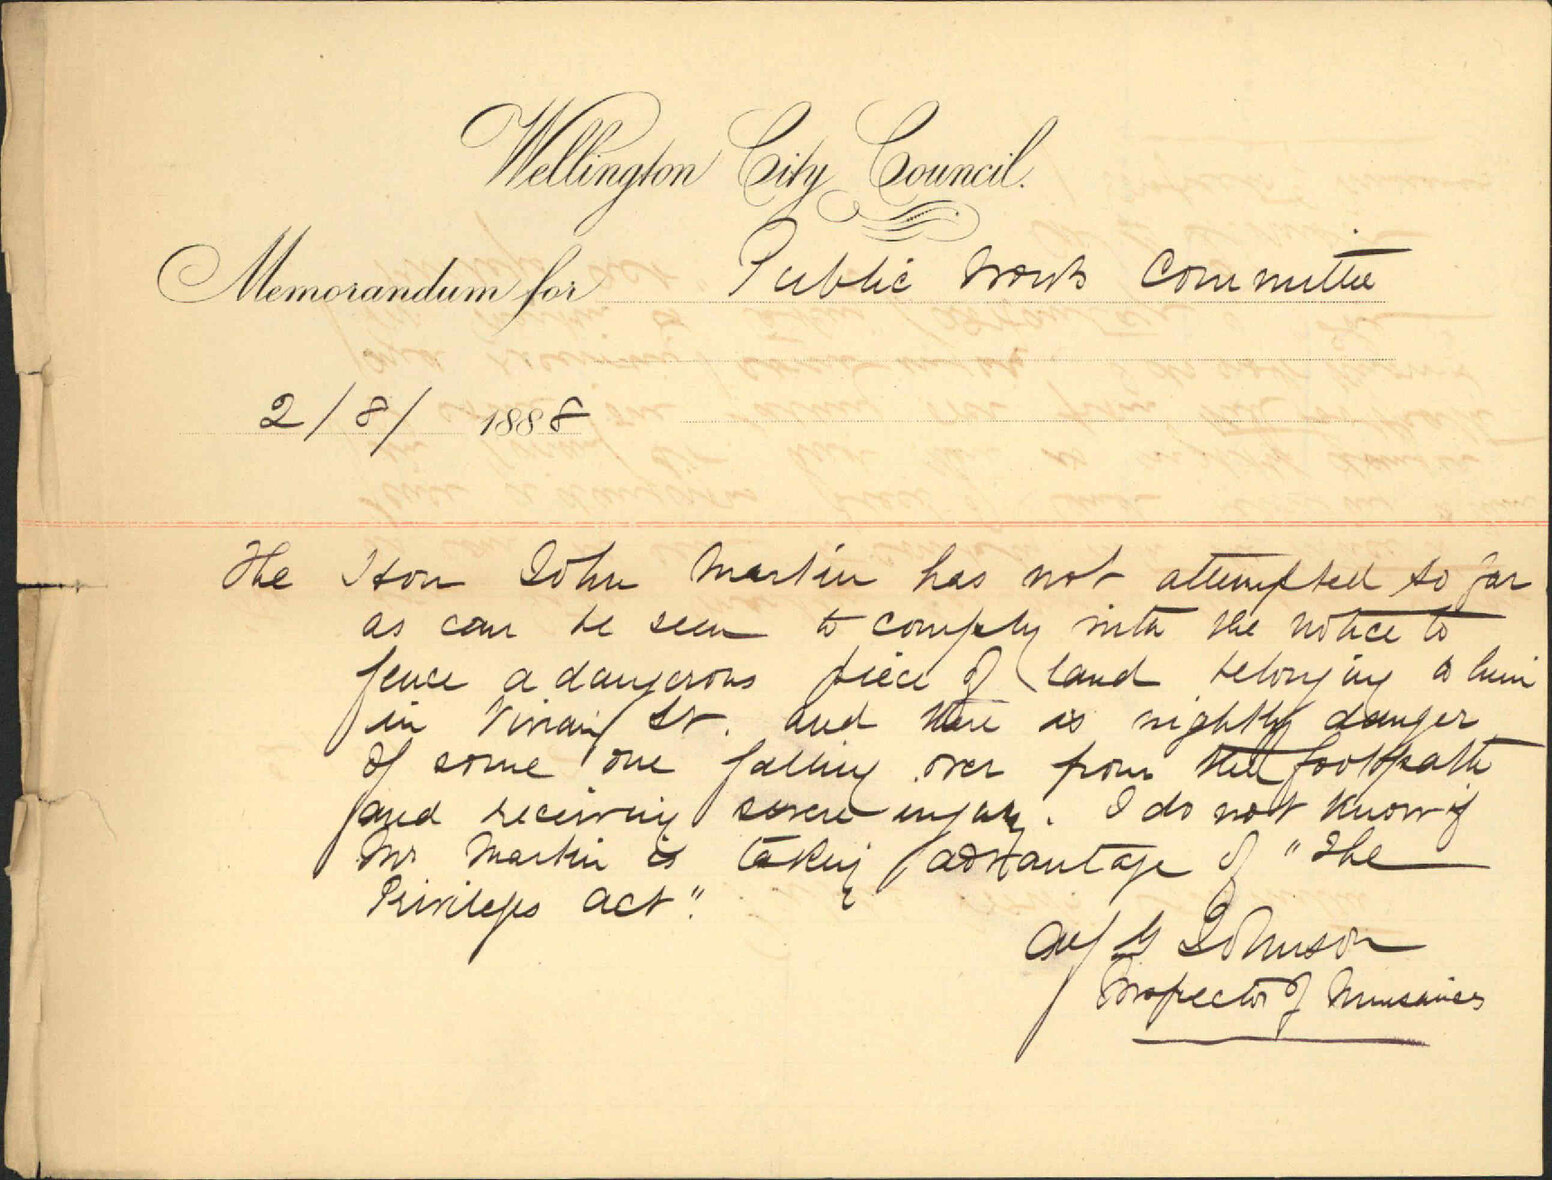 Wellington City Council.
Memorandum for Public Works Committee
2/8/ 1888
The Hon John Martin has not attempted so far
as can be seen to comply with the notice to
fence a dangerous piece of land belonging to him
in Vivian St. and there is nightly danger
of some one falling over from the footpath
and receiving severe injury. I do not know if
Mr Martin is taking advantage of "The
Privileges act".
Johnson
Inspector of Nuisances